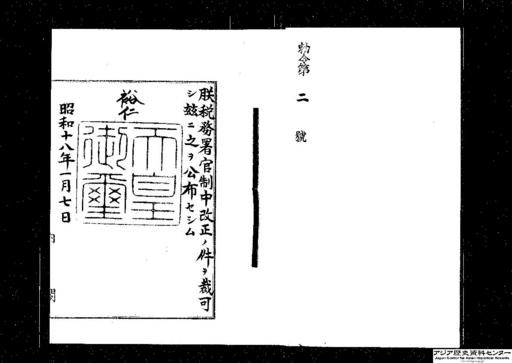 勅令第二號
朕税務署官制中改正ノ件ヲ裁可
シ茲ニ之ヲ公布セシム
裕仁
天皇御璽
昭和十八年一月七日
内閣
アジア歴史資料センター
Japan Center for Asian Historical Records